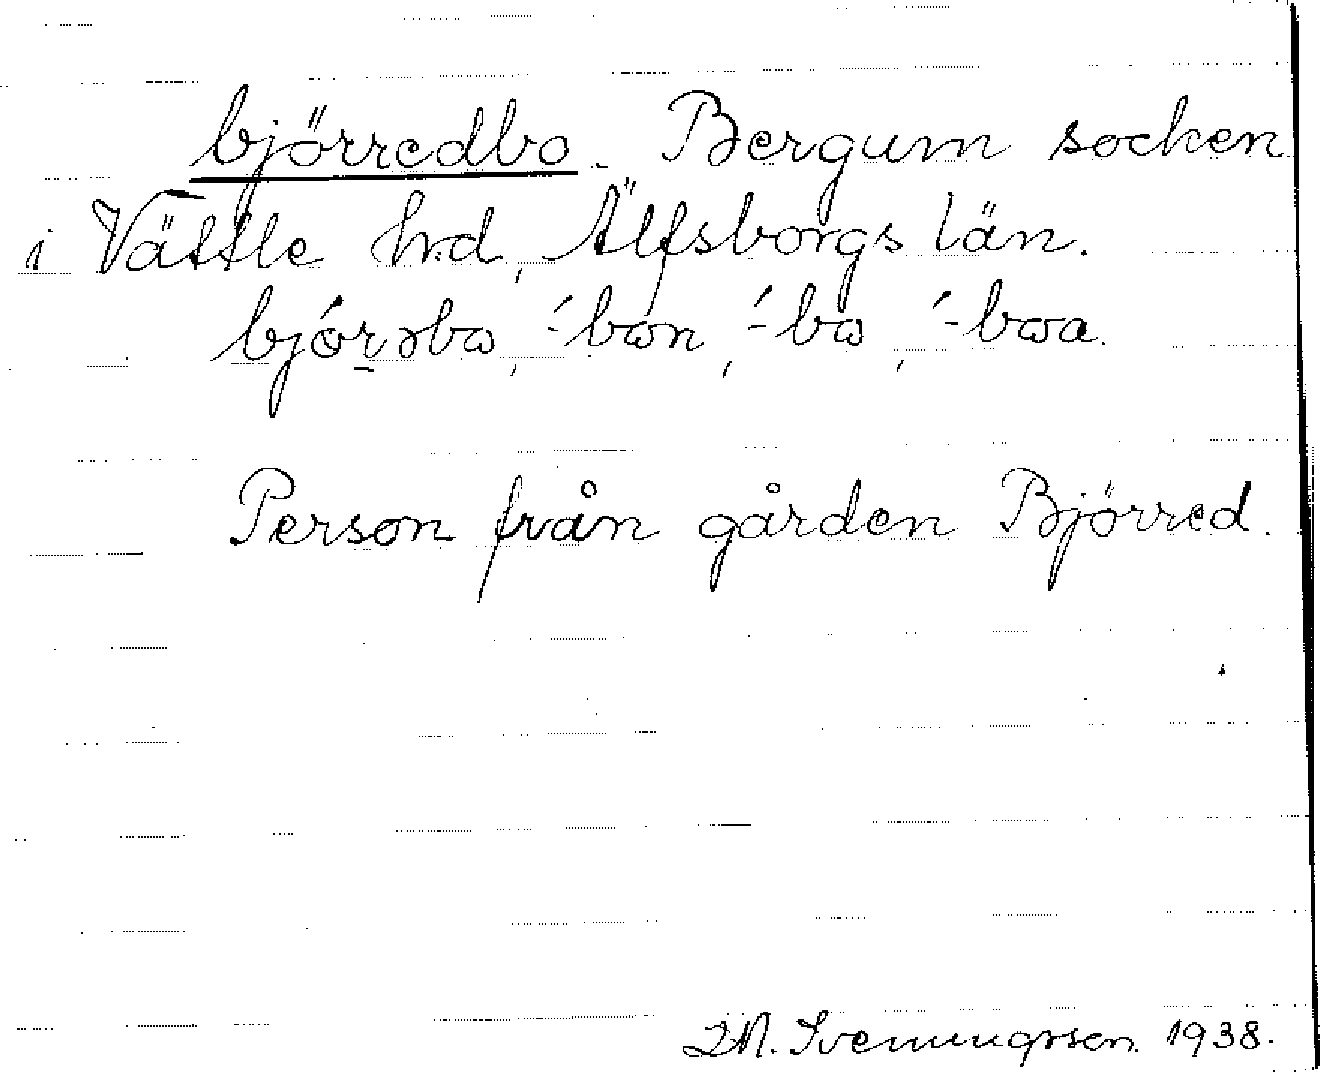 björredbo. Bergum socken
i Vättle hrd, Älfsborgs län.
bjór̠əbω, ́-bωn, ́-bω, ́-bωa.
Person från gården Björred.
1938.